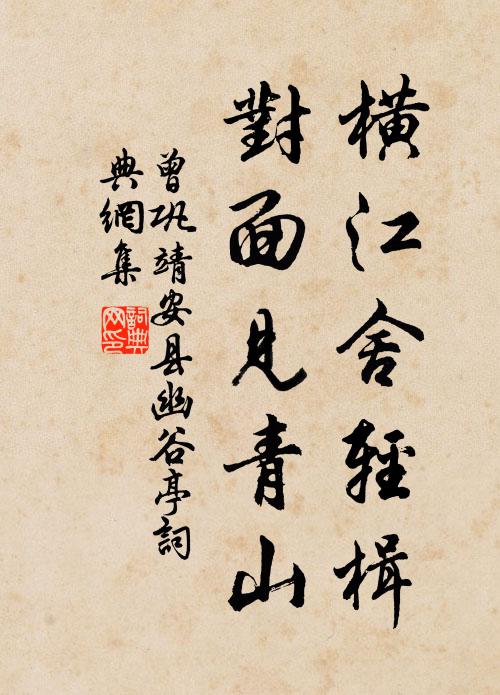 橫江舍輕楫
對面見青山
曾巩靖安县幽谷亭詞
典網集
詞典
网印